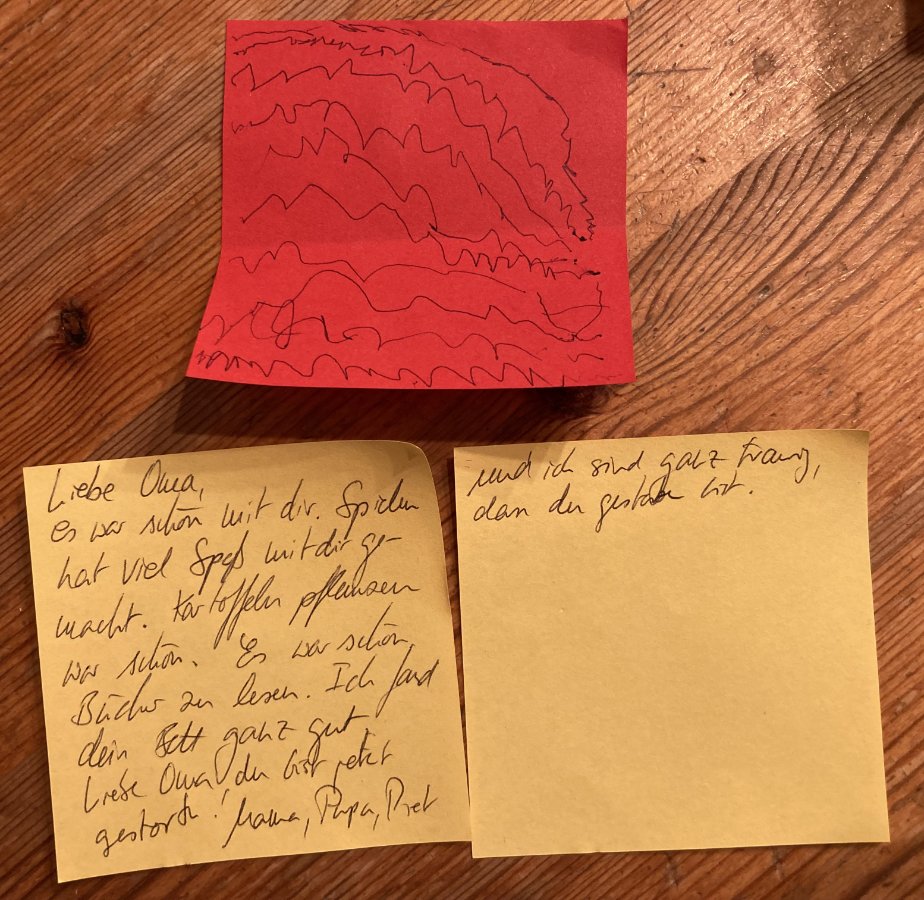 Liebe Oma,
es war schön mit dir. Spielen
hat viel Spaß mit dir ge-
macht. Kartoffeln pflanzen
war schön. Es war schön,
Bücher zu lesen. Ich fand
dein Bett ganz gut.
Liebe Oma, du bist jetzt
gestorben! Mama, Papa, Piet
und ich sind ganz traurig,
dass du gestorben bist.